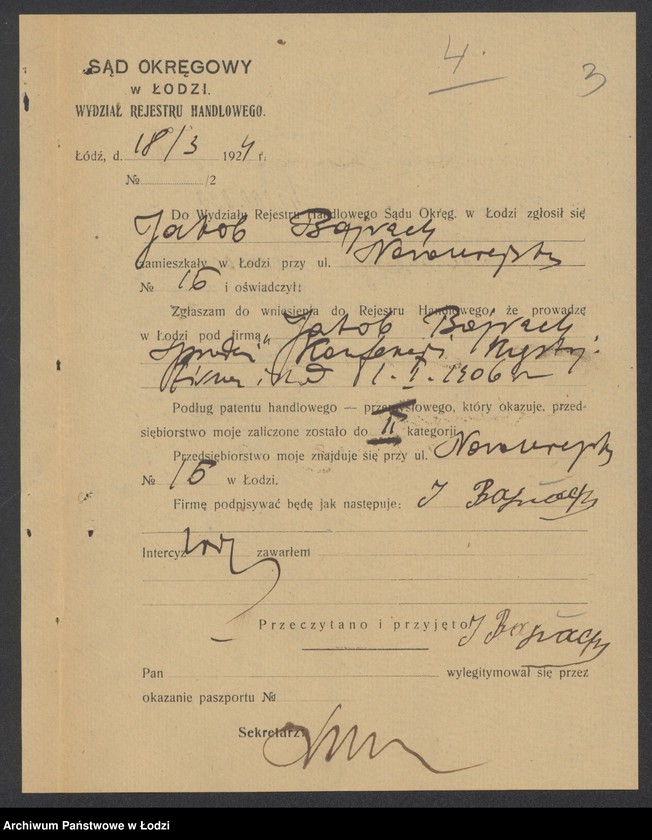 4.
3
SĄD OKRĘGOWY
w ŁODZI.
WYDZIAŁ REJESTRU HANDLOWEGO.
Łódź, d. 18/3 1924 r.
№ /2
Do Wydziału Rejestru Handlowego Sądu Okręg. w Łodzi zgłosił się
Jakob
zamieszkały w Łodzi przy ul.
№ 15 i oświadczył:
Zgłaszam do wniesienia do Rejestru Handlowego, że prowadzę
w Łodzi pod firmą „Jakob
1.I.1906 r
Podług patentu handlowego — przemysłowego, który okazuje, przed-
siębiorstwo moje zaliczone zostało do II kategorji.
Przedsiębiorstwo moje znajduje się przy ul.
№ 15 w Łodzi.
Firmę podpisywać będę jak następuje: J
Intercyz zawarłem
Przeczytano i przyjęto J
Pan wylegitymował się przez
okazanie paszportu №
Sekretarz:
Archiwum Państwowe w Łodzi